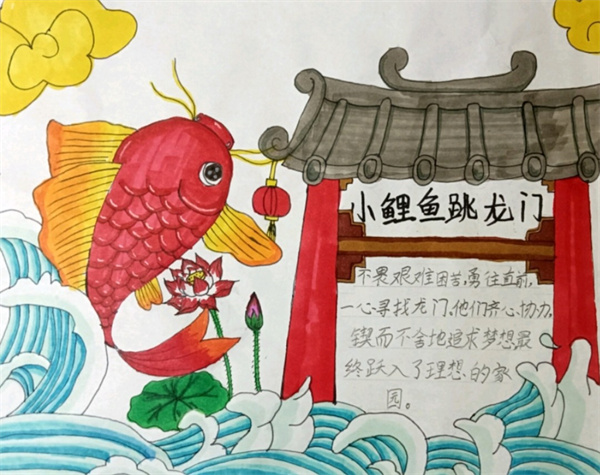 小鲤鱼跳龙门
不畏艰难困苦,勇往直前,
一心寻找龙门,他们齐心协力,
锲而不舍地追求梦想,最
终跃入了理想的家
园。